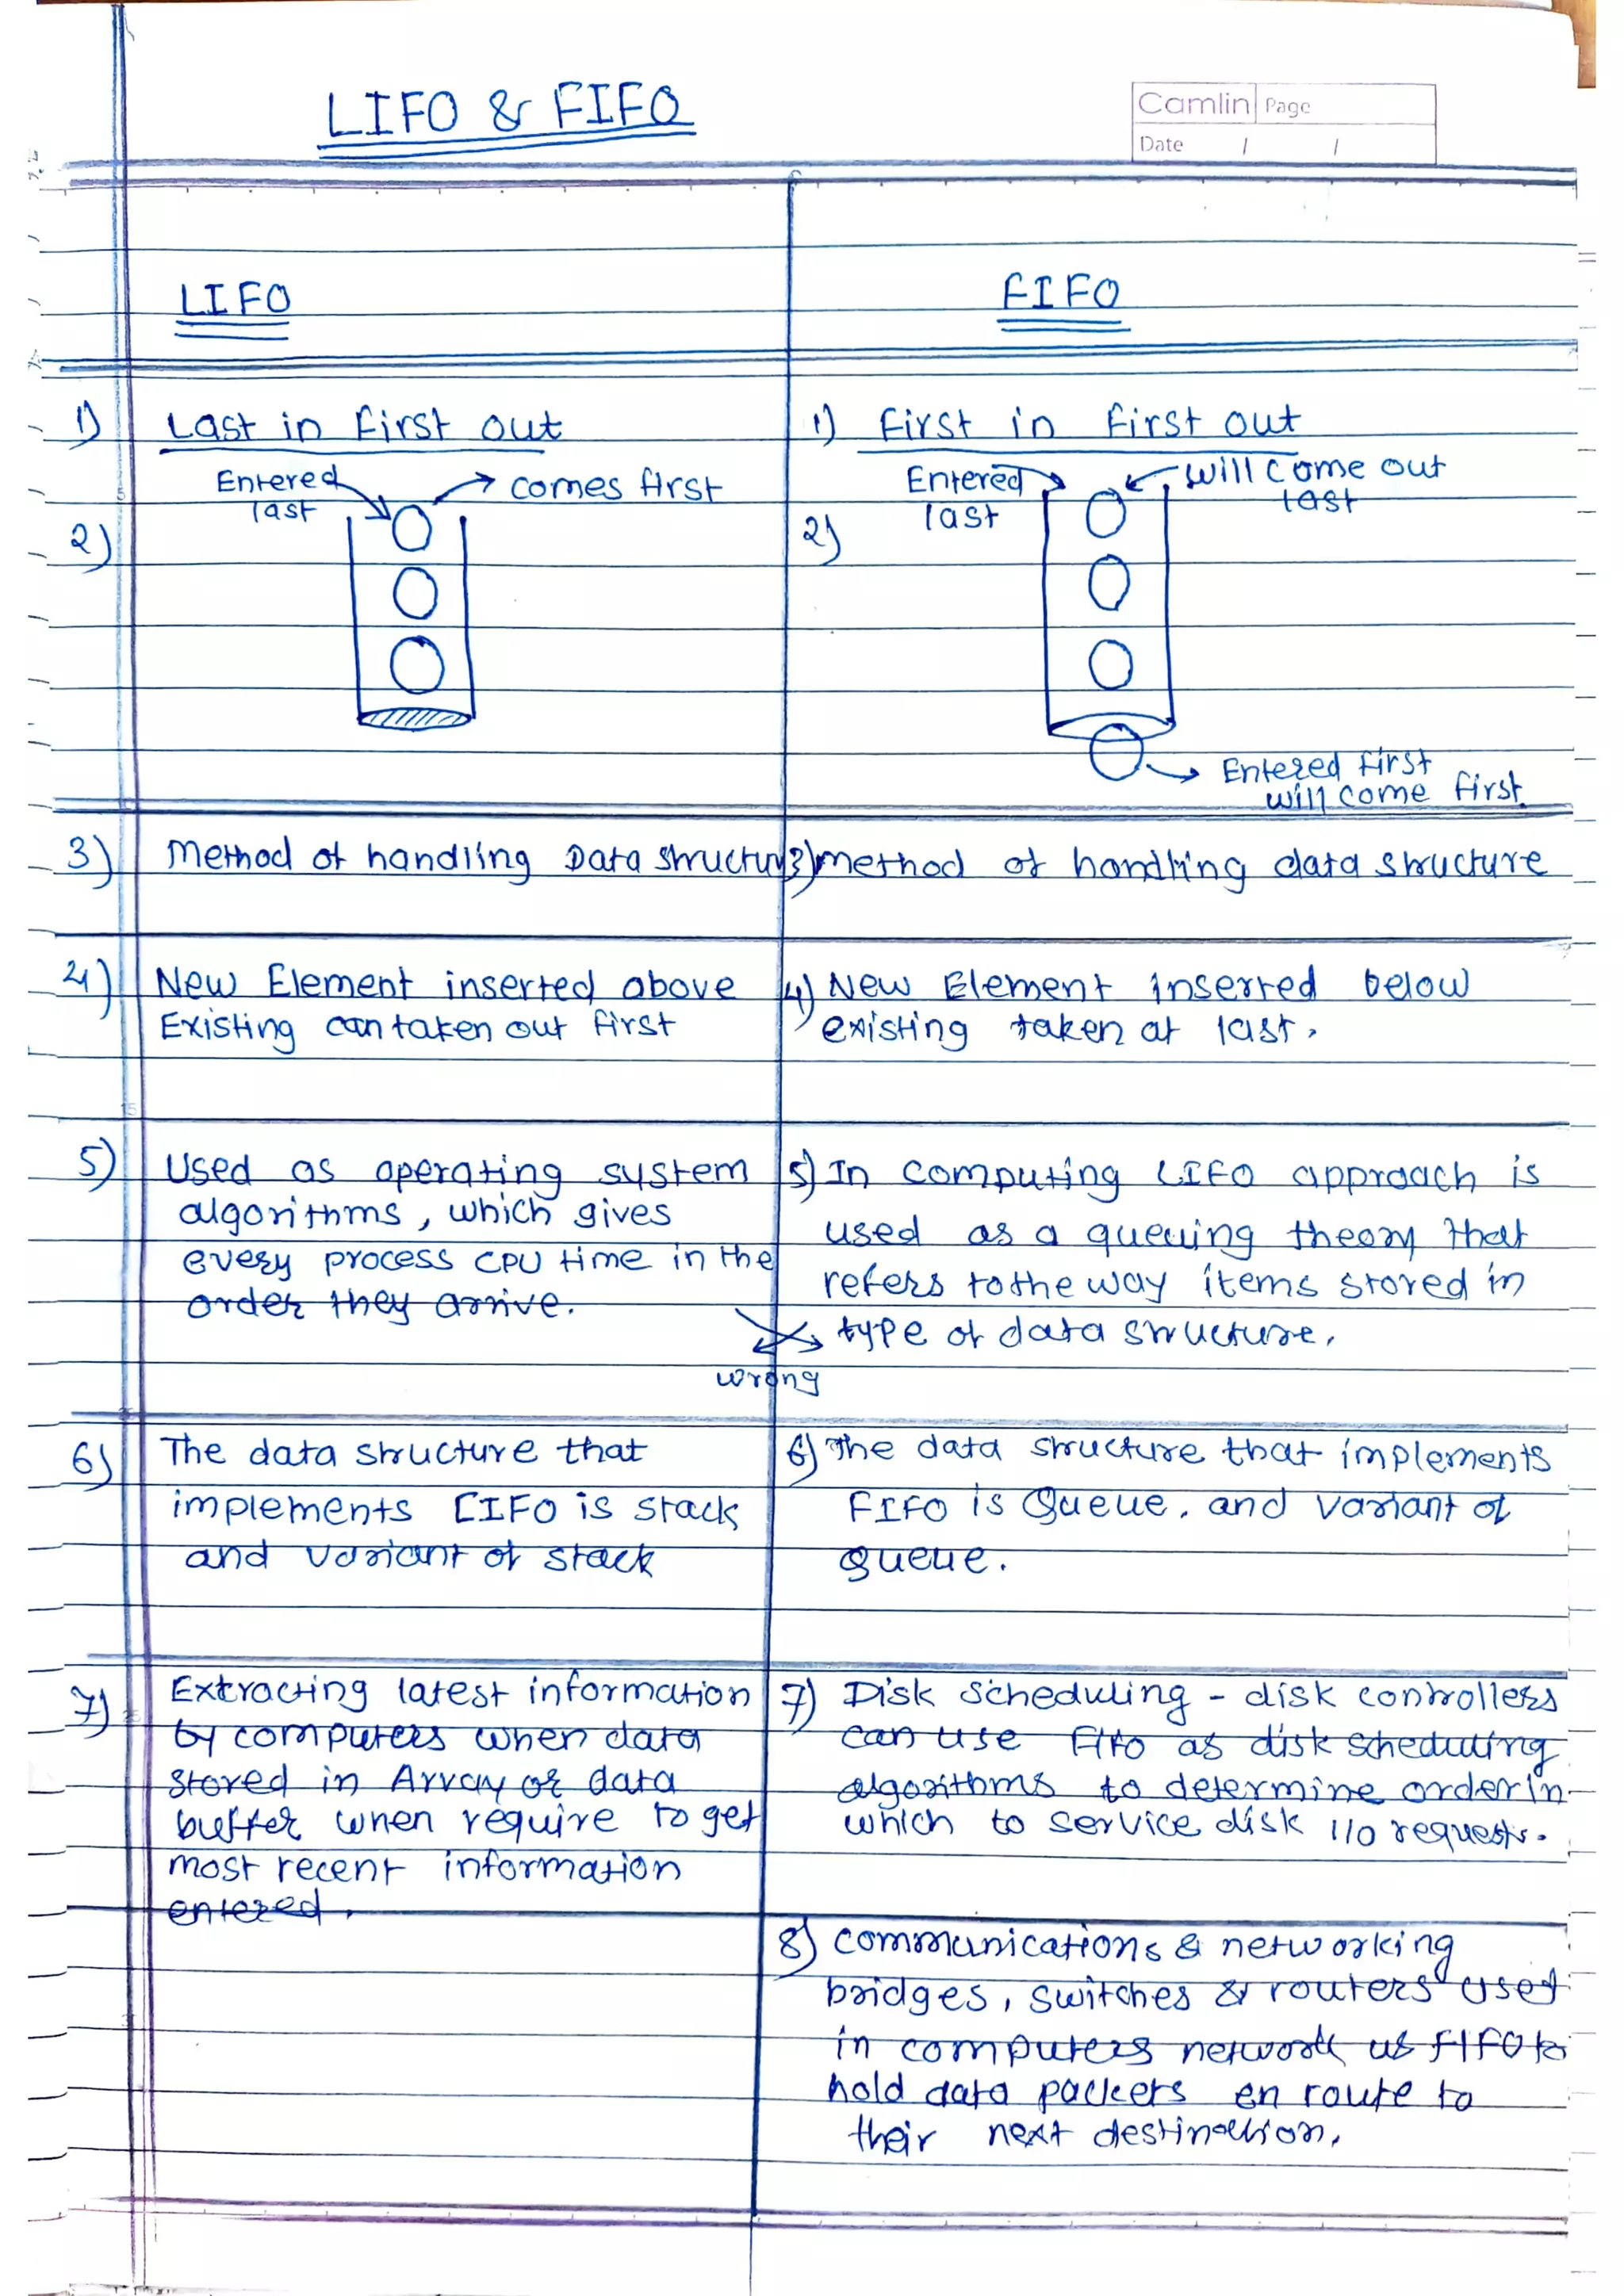 LIFO & FIFO
Camlin Page
Date / /
LIFO
1) Last in First out
Entered → comes first
last
2)
3) Method of handling Data structure
4) New Element inserted above
Existing can taken out first
5) Used as operating system
algorithms, which gives
every process CPU time in the
order they arrive.
wrong
6) The data structure that
implements LIFO is stack
and variant of stack
7) Extracting latest information
by computers when data
stored in Array or data
buffer when require to get
most recent information
entered.
FIFO
1) First in first out
Entered will come out
last last
2)
→ Entered first
will come first.
3) method of handling data structure
4) New Element inserted below
existing taken at last.
5) In computing LIFO approach is
used as a queuing theory that
refers to the way items stored in
type of data structure.
6) The data structure that implements
FIFO is Queue. and variant of
Queue.
7) Disk scheduling - disk controllers
can use FIFO as disk scheduling
algorithms to determine order in
which to service disk I/O requests.
8) communications & networking
bridges, switches & routers used
in computers network us FIFO to
hold data packets en route to
their next destination.